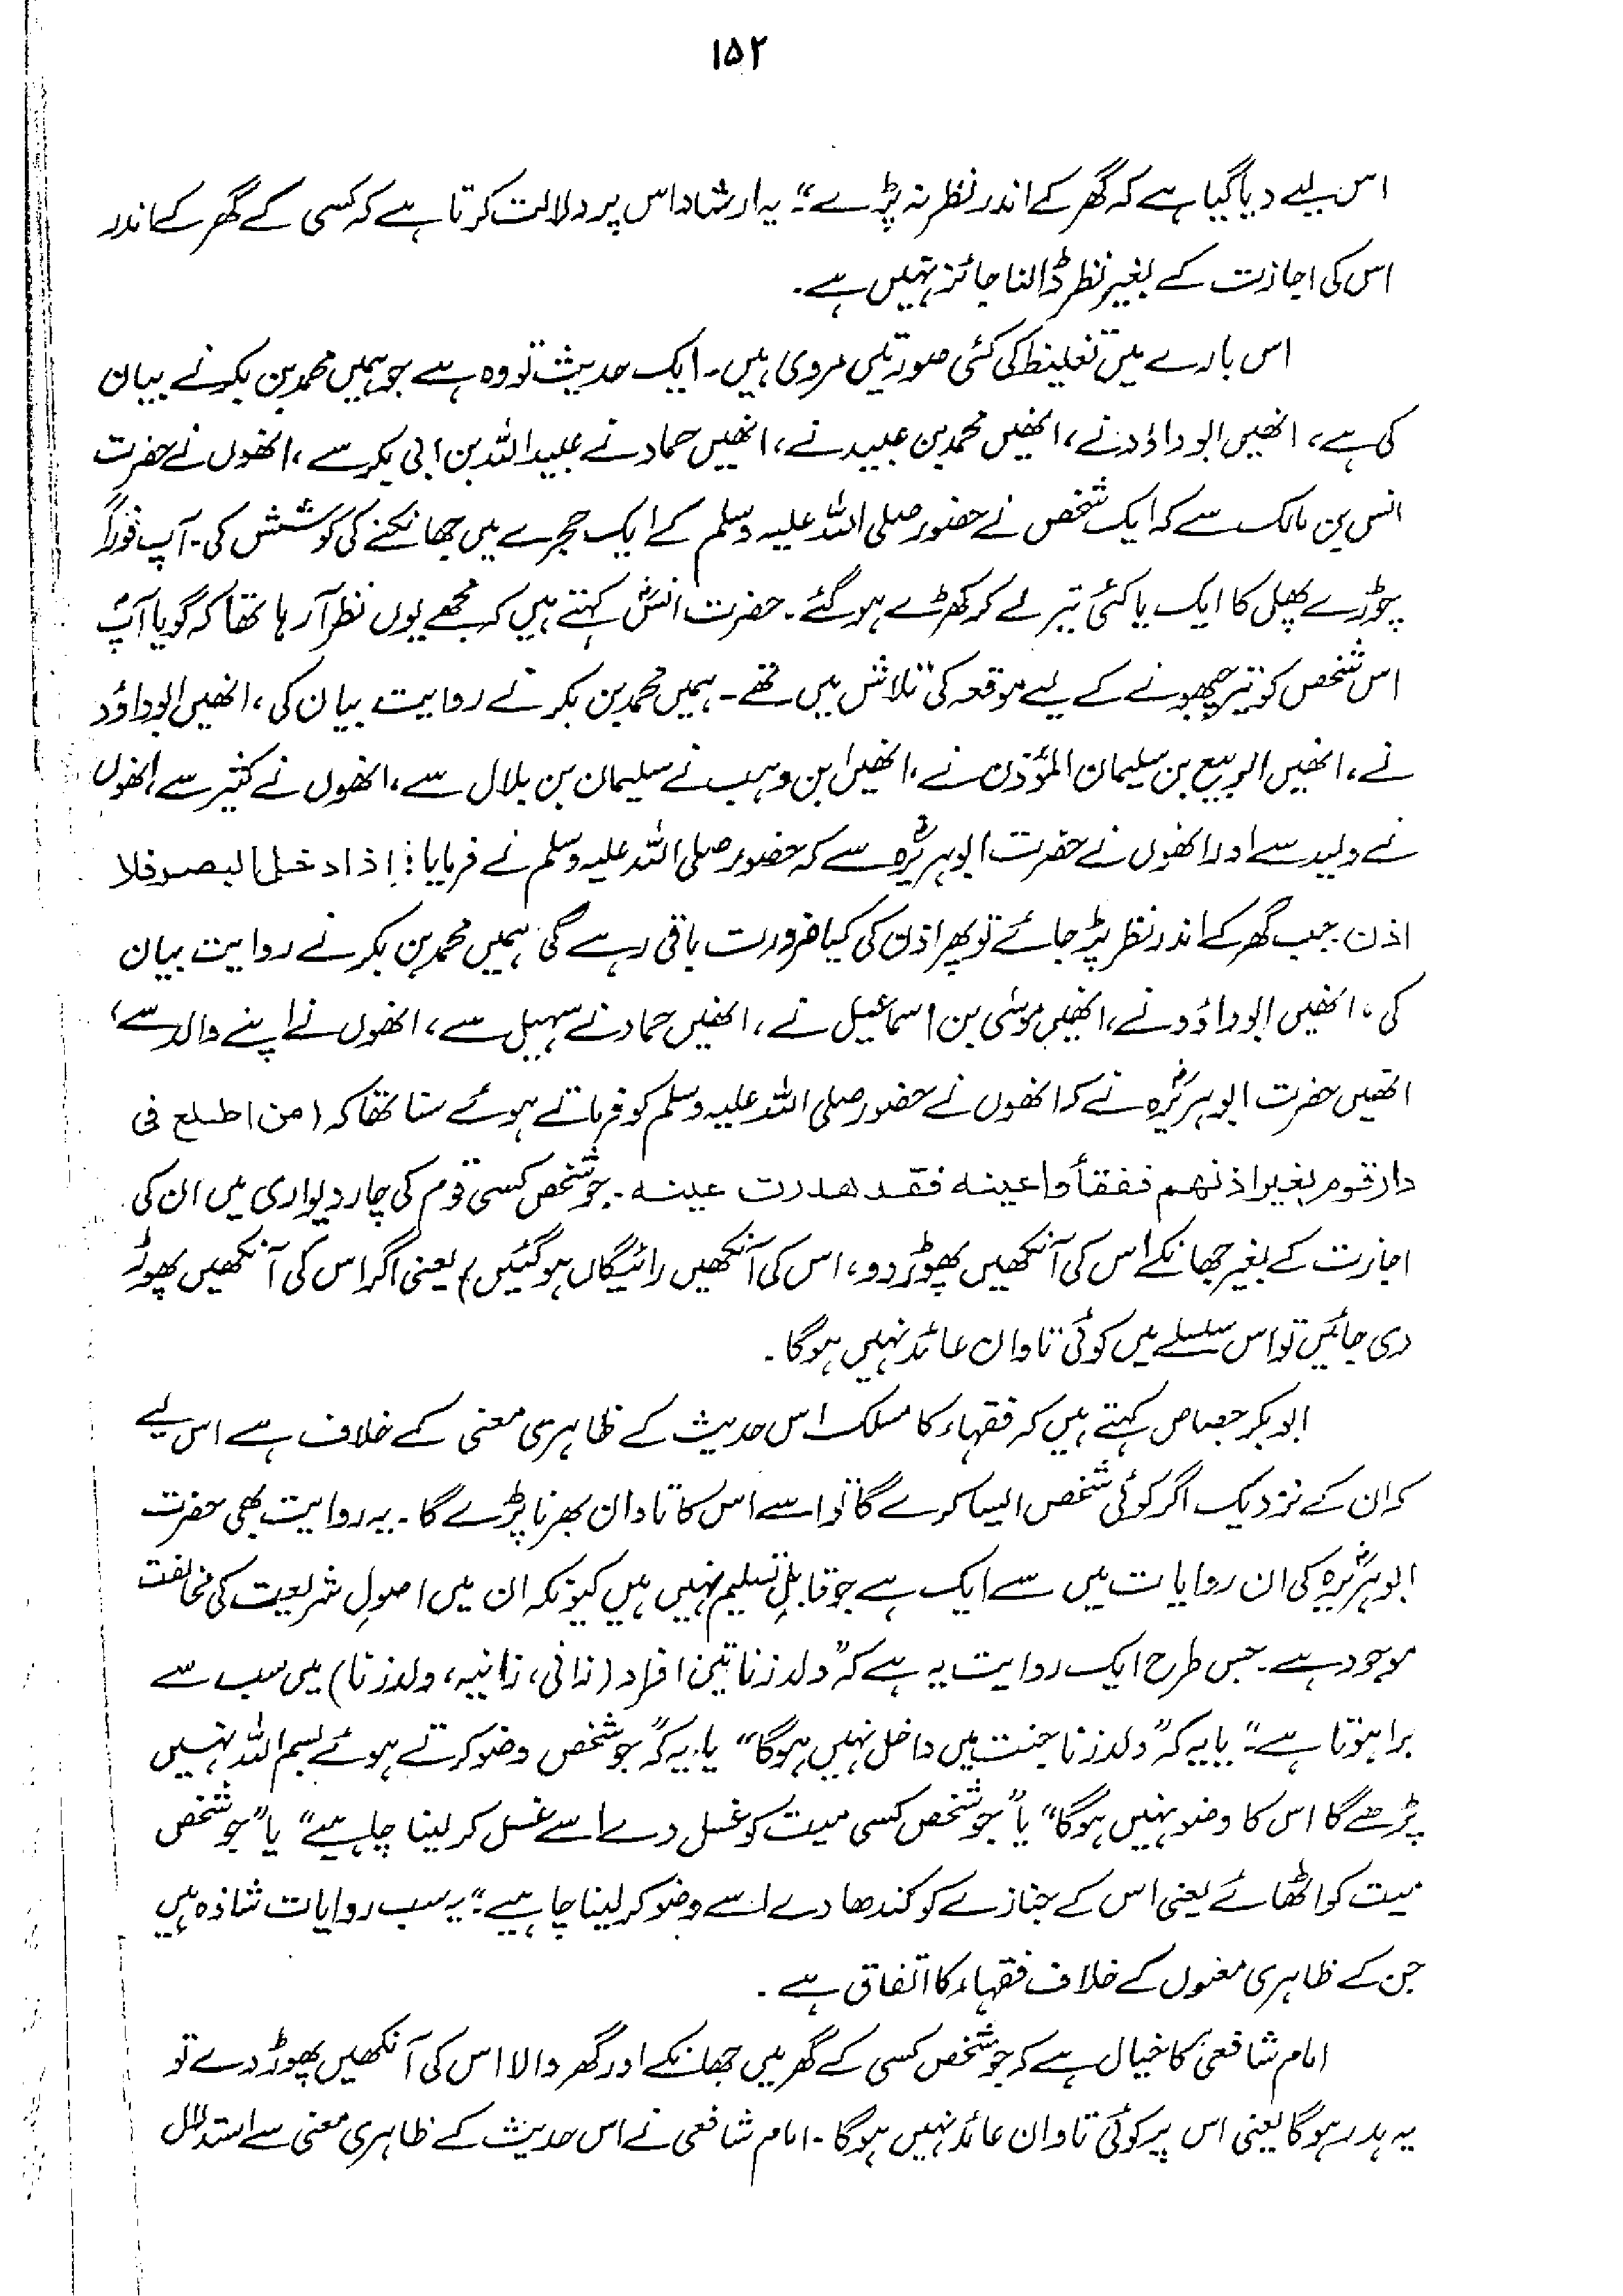 ۱۵۲
اس لیے دیا گیا ہے کہ گھر کے اندر نظر نہ پڑے"۔ یہ ارشاد اس پر دلالت کرتا ہے کہ کسی کے گھر کے اندر
اس کی اجازت کے بغیر نظر ڈالنا جائز نہیں ہے۔
اس بارے میں تغلیظ کی کئی صورتیں مروی ہیں۔ ایک حدیث تو وہ ہے جو ہمیں محمد بن بکر نے بیان
کی ہے، انھیں ابو داؤد نے، انھیں محمد بن عبید نے، انھیں حماد نے عبید اللہ بن ابی بکر سے، انھوں نے حضرت
انس بن مالک سے کہ ایک شخص نے حضور صلی اللہ علیہ وسلم کے ایک حجرے میں جھانکنے کی کوشش کی۔ آپ فوراً
چوڑے پھل کا ایک یا کئی تیر لے کر کھڑے ہو گئے۔ حضرت انسؓ کہتے ہیں کہ مجھے یوں نظر آ رہا تھا کہ گویا آپؐ
اس شخص کو تیر چبھونے کے لیے موقعہ کی تلاش میں تھے۔ ہمیں محمد بن بکر نے روایت بیان کی، انھیں ابو داؤد
نے، انھیں الربیع بن سلیمان المؤذن نے، انھیں ابن وہب نے سلیمان بن بلال سے، انھوں نے کثیر سے انھوں
نے ولید سے اور انھوں نے حضرت ابو ہریرہؓ سے کہ حضور صلی اللہ علیہ وسلم نے فرمایا: اذا دخل البصر فلا
اذن۔ جب گھر کے اندر نظر پڑ جائے تو پھر اذن کی کیا ضرورت باقی رہے گی۔ ہمیں محمد بن بکر نے روایت بیان
کی، انھیں ابو داؤد نے، انھیں موسٰی بن اسماعیل نے، انھیں حماد نے سہیل سے، انھوں نے اپنے والد سے،
انھیں حضرت ابو ہریرہؓ نے کہ انھوں نے حضور صلی اللہ علیہ وسلم کو فرماتے ہوئے سنا تھا کہ (من اطلع فی
دار قوم بغیر اذنهم ففقأوا عینه فقد هدرت عینه۔ جو شخص کسی قوم کی چار دیواری میں ان کی
اجازت کے بغیر جھانکے اس کی آنکھیں پھوڑ دو، اس کی آنکھیں رائیگاں ہو گئیں) یعنی اگر اس کی آنکھیں پھوڑ
دی جائیں تو اس سلسلے میں کوئی تاوان عائد نہیں ہوگا۔
ابو بکر جصاص کہتے ہیں کہ فقہاء کا مسلک اس حدیث کے ظاہری معنی کے خلاف ہے اس لیے
کہ ان کے نزدیک اگر کوئی شخص ایسا کرے گا تو اسے اس کا تاوان بھرنا پڑے گا۔ یہ روایت بھی حضرت
ابو ہریرہؓ کی ان روایات میں سے ایک ہے جو قابلِ تسلیم نہیں ہیں کیونکہ ان میں اصولِ شریعت کی مخالفت
موجود ہے۔ جس طرح ایک روایت یہ ہے کہ "ولد زنا تین افراد (زانی، زانیہ، ولد زنا) میں سب سے
برا ہوتا ہے"۔ یا یہ کہ "ولد زنا جنت میں داخل نہیں ہوگا" یا یہ کہ "جو شخص وضو کرتے ہوئے بسم اللہ نہیں
پڑھے گا اس کا وضو نہیں ہوگا" یا "جو شخص کسی میت کو غسل دے اسے غسل کر لینا چاہیے" یا "جو شخص
میت کو اٹھائے یعنی اس کے جنازے کو کندھا دے اسے وضو کر لینا چاہیے"۔ یہ سب روایات شاذہ ہیں
جن کے ظاہری معنوں کے خلاف فقہاء کا اتفاق ہے۔
امام شافعیؒ کا خیال ہے کہ جو شخص کسی کے گھر میں جھانکے اور گھر والا اس کی آنکھیں پھوڑ دے تو
یہ ہدر ہوگا یعنی اس پر کوئی تاوان عائد نہیں ہوگا۔ امام شافعی نے اس حدیث کے ظاہری معنی سے استدلال